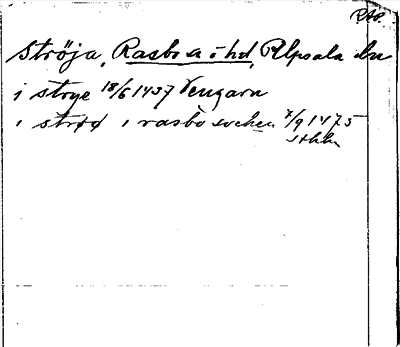 RAP.
Ströja, Rasbo s o hd, Upsala län
i strye 18/6 1437 Vengarn
i strøø i rasbo sochen 7/9 1475
Sthlm